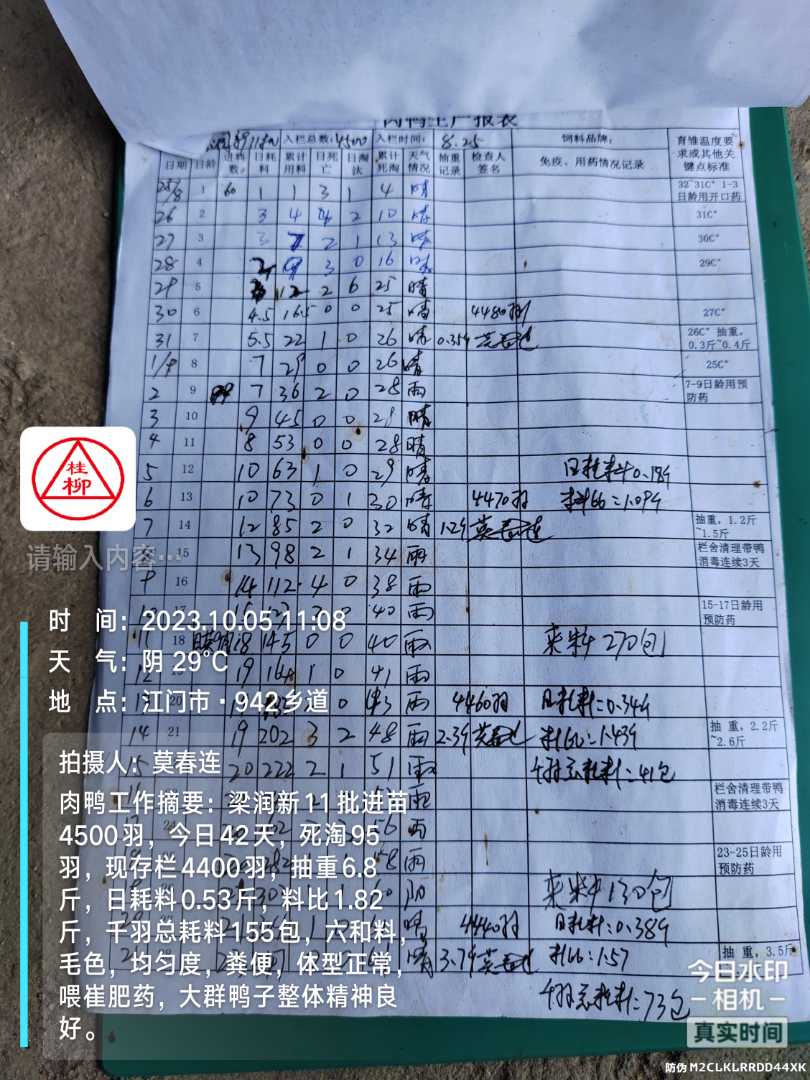 肉鸭生产报表
入栏总数: 4500 入栏时间: 8.25 饲料品牌:
日期 日龄 进料数 日耗料 累计用料 日死亡 日淘汰 累计死淘 天气情况 抽重记录 检查人签名 免疫、用药情况记录 育雏温度要求或其他关键点标准
25/8 1 60 1 1 3 1 4 晴 32~31C° 1-3日龄用开口药
26 2 3 4 4 2 10 晴 31C°
27 3 3 7 2 1 13 晴 30C°
28 4 2 9 3 0 16 晴 29C°
29 5 3 12 2 6 25 晴
30 6 4.5 16.5 0 0 25 晴 4480羽 27C°
31 7 5.5 22 1 0 26 晴 0.35斤 莫春连 26C° 抽重,0.3斤~0.4斤
1/9 8 7 29 0 0 26 晴 25C°
2 9 7 36 2 0 28 雨 7-9日龄用预防药
3 10 9 45 0 0 28 晴
4 11 8 53 0 0 28 晴
5 12 10 63 1 0 29 晴 日耗料0.18斤
6 13 10 73 0 1 30 晴 4470羽 料比=1.09斤
7 14 12 85 2 0 32 晴 1.2斤 莫春连 抽重,1.2斤~1.5斤
15 13 98 2 1 34 雨 栏舍清理带鸭消毒连续3天
9 16 14 112 4 0 38 雨
17 0 40 雨 15-17日龄用预防药
11 18 18 145 0 0 40 雨 来料270包
12 19 164 1 0 41 雨
20 0 43 雨 4460羽 日耗料=0.34斤
14 21 19 202 3 2 48 雨 2.3斤 莫春连 料比=1.43斤 抽重,2.2斤~2.6斤
15 20 222 2 1 51 雨 千羽总耗料=41包
雨 栏舍清理带鸭消毒连续3天
56 雨
58 雨 23-25日龄用预防药
阴 来料130包
晴 4440羽 日耗料=0.38斤
晴 3.7斤 莫春连 料比:1.57 抽重,3.5斤
千羽总耗料=73包
桂柳
请输入内容…
时 间: 2023.10.05 11:08
天 气: 阴 29℃
地 点: 江门市·942乡道
拍摄人: 莫春连
肉鸭工作摘要: 梁润新11批进苗
4500羽,今日42天,死淘95
羽,现存栏4400羽,抽重6.8
斤,日耗料0.53斤,料比1.82
斤,千羽总耗料155包,六和料,
毛色,均匀度,粪便,体型正常,
喂崔肥药,大群鸭子整体精神良
好。
今日水印
相机
真实时间
防伪 M2CLKLRRDD44XK